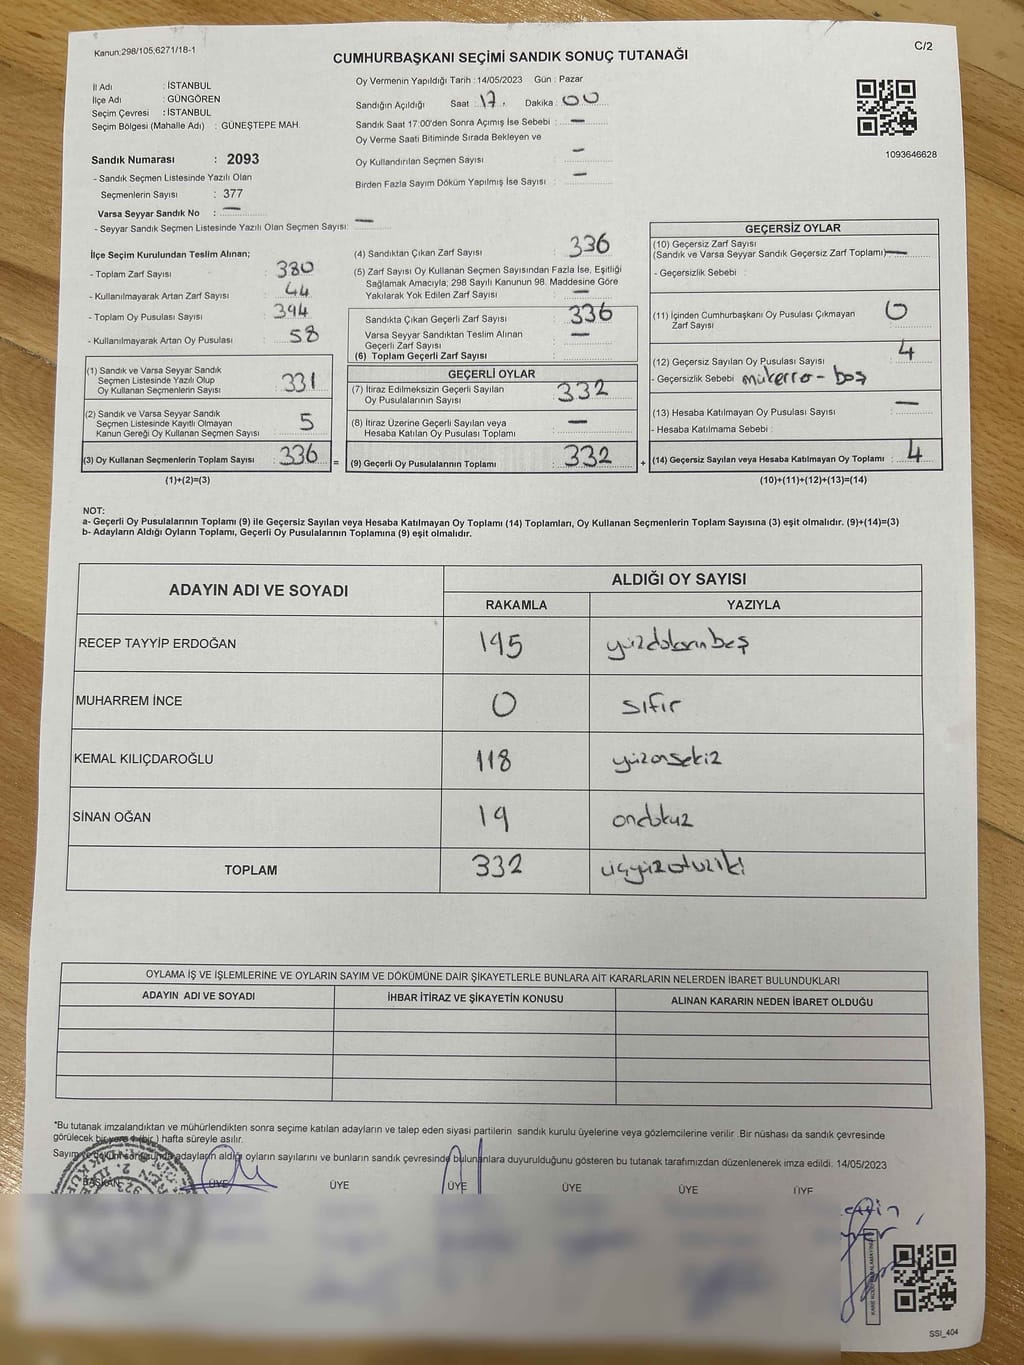 Kanun;298/105,6271/18-1
C/2
CUMHURBAŞKANI SEÇİMİ SANDIK SONUÇ TUTANAĞI
İl Adı : İSTANBUL
İlçe Adı : GÜNGÖREN
Seçim Çevresi : İSTANBUL
Seçim Bölgesi (Mahalle Adı) : GÜNEŞTEPE MAH.
Sandık Numarası : 2093
- Sandık Seçmen Listesinde Yazılı Olan
Seçmenlerin Sayısı : 377
Varsa Seyyar Sandık No : —
- Seyyar Sandık Seçmen Listesinde Yazılı Olan Seçmen Sayısı: —
Oy Vermenin Yapıldığı Tarih : 14/05/2023 Gün : Pazar
Sandığın Açıldığı Saat : 17. Dakika : 00
Sandık Saat 17:00'den Sonra Açımış İse Sebebi : —
Oy Verme Saati Bitiminde Sırada Bekleyen ve
Oy Kullandırılan Seçmen Sayısı : —
Birden Fazla Sayım Döküm Yapılmış İse Sayısı : —
1093646628
İlçe Seçim Kurulundan Teslim Alınan;
- Toplam Zarf Sayısı : 380
- Kullanılmayarak Artan Zarf Sayısı : 44
- Toplam Oy Pusulası Sayısı : 394
- Kullanılmayarak Artan Oy Pusulası : 58
(1) Sandık ve Varsa Seyyar Sandık
Seçmen Listesinde Yazılı Olup
Oy Kullanan Seçmenlerin Sayısı : 331
(2) Sandık ve Varsa Seyyar Sandık
Seçmen Listesinde Kayıtlı Olmayan
Kanun Gereği Oy Kullanan Seçmen Sayısı : 5
(3) Oy Kullanan Seçmenlerin Toplam Sayısı : 336
(1)+(2)=(3)
(4) Sandıktan Çıkan Zarf Sayısı : 336
(5) Zarf Sayısı Oy Kullanan Seçmen Sayısından Fazla İse, Eşitliği
Sağlamak Amacıyla; 298 Sayılı Kanunun 98. Maddesine Göre
Yakılarak Yok Edilen Zarf Sayısı : —
Sandıkta Çıkan Geçerli Zarf Sayısı : 336
Varsa Seyyar Sandıktan Teslim Alınan
Geçerli Zarf Sayısı : —
(6) Toplam Geçerli Zarf Sayısı :
GEÇERLİ OYLAR
(7) İtiraz Edilmeksizin Geçerli Sayılan
Oy Pusulalarının Sayısı : 332
(8) İtiraz Üzerine Geçerli Sayılan veya
Hesaba Katılan Oy Pusulası Toplamı : —
= (9) Geçerli Oy Pusulalarının Toplamı : 332 +
GEÇERSİZ OYLAR
(10) Geçersiz Zarf Sayısı
(Sandık ve Varsa Seyyar Sandık Geçersiz Zarf Toplamı) —
- Geçersizlik Sebebi :
(11) İçinden Cumhurbaşkanı Oy Pusulası Çıkmayan
Zarf Sayısı : 0
(12) Geçersiz Sayılan Oy Pusulası Sayısı : 4
- Geçersizlik Sebebi : mükerrer - boş
(13) Hesaba Katılmayan Oy Pusulası Sayısı : —
- Hesaba Katılmama Sebebi :
(14) Geçersiz Sayılan veya Hesaba Katılmayan Oy Toplamı : 4
(10)+(11)+(12)+(13)=(14)
NOT:
a- Geçerli Oy Pusulalarının Toplamı (9) ile Geçersiz Sayılan veya Hesaba Katılmayan Oy Toplamı (14) Toplamları, Oy Kullanan Seçmenlerin Toplam Sayısına (3) eşit olmalıdır. (9)+(14)=(3)
b- Adayların Aldığı Oyların Toplamı, Geçerli Oy Pusulalarının Toplamına (9) eşit olmalıdır.
ADAYIN ADI VE SOYADI ALDIĞI OY SAYISI
RAKAMLA YAZIYLA
RECEP TAYYİP ERDOĞAN 195 yüzdoksanbeş
MUHARREM İNCE 0 sıfır
KEMAL KILIÇDAROĞLU 118 yüzonsekiz
SİNAN OĞAN 19 ondokuz
TOPLAM 332 üçyüzotuziki
OYLAMA İŞ VE İŞLEMLERİNE VE OYLARIN SAYIM VE DÖKÜMÜNE DAİR ŞİKAYETLERLE BUNLARA AİT KARARLARIN NELERDEN İBARET BULUNDUKLARI
ADAYIN ADI VE SOYADI İHBAR İTİRAZ VE ŞİKAYETİN KONUSU ALINAN KARARIN NEDEN İBARET OLDUĞU
*Bu tutanak imzalandıktan ve mühürlendikten sonra seçime katılan adayların ve talep eden siyasi partilerin sandık kurulu üyelerine veya gözlemcilerine verilir .Bir nüshası da sandık çevresinde
görülecek bir yere 1 (bir ) hafta süreyle asılır.
Sayım ve döküm sonucunda adayların aldığı oyların sayılarını ve bunların sandık çevresinde bulunanlara duyurulduğunu gösteren bu tutanak tarafımızdan düzenlenerek imza edildi. 14/05/2023
BAŞKAN ÜYE ÜYE ÜYE ÜYE ÜYE ÜYE
SSI_404